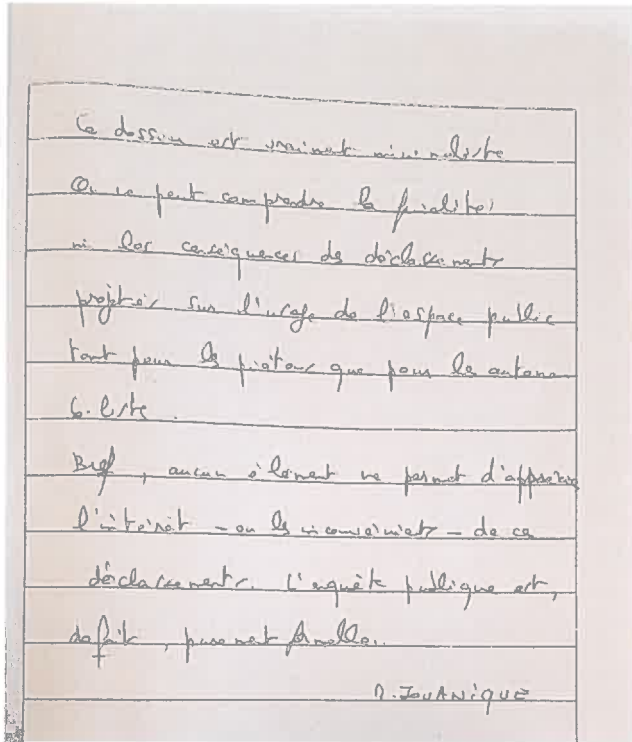 Ce dossier est vraiment minimaliste
On ne peut comprendre la finalité
ni les conséquences de déclassements
projetés sur l'usage de l'espace public
tant pour les piétons que pour les automo
biliste.
Bref, aucun élément ne permet d'apprécier
l'intérêt - ou les inconvénients - de ce
déclassements. L'enquête publique est,
de fait, purement formelle.
JOUANIQUE